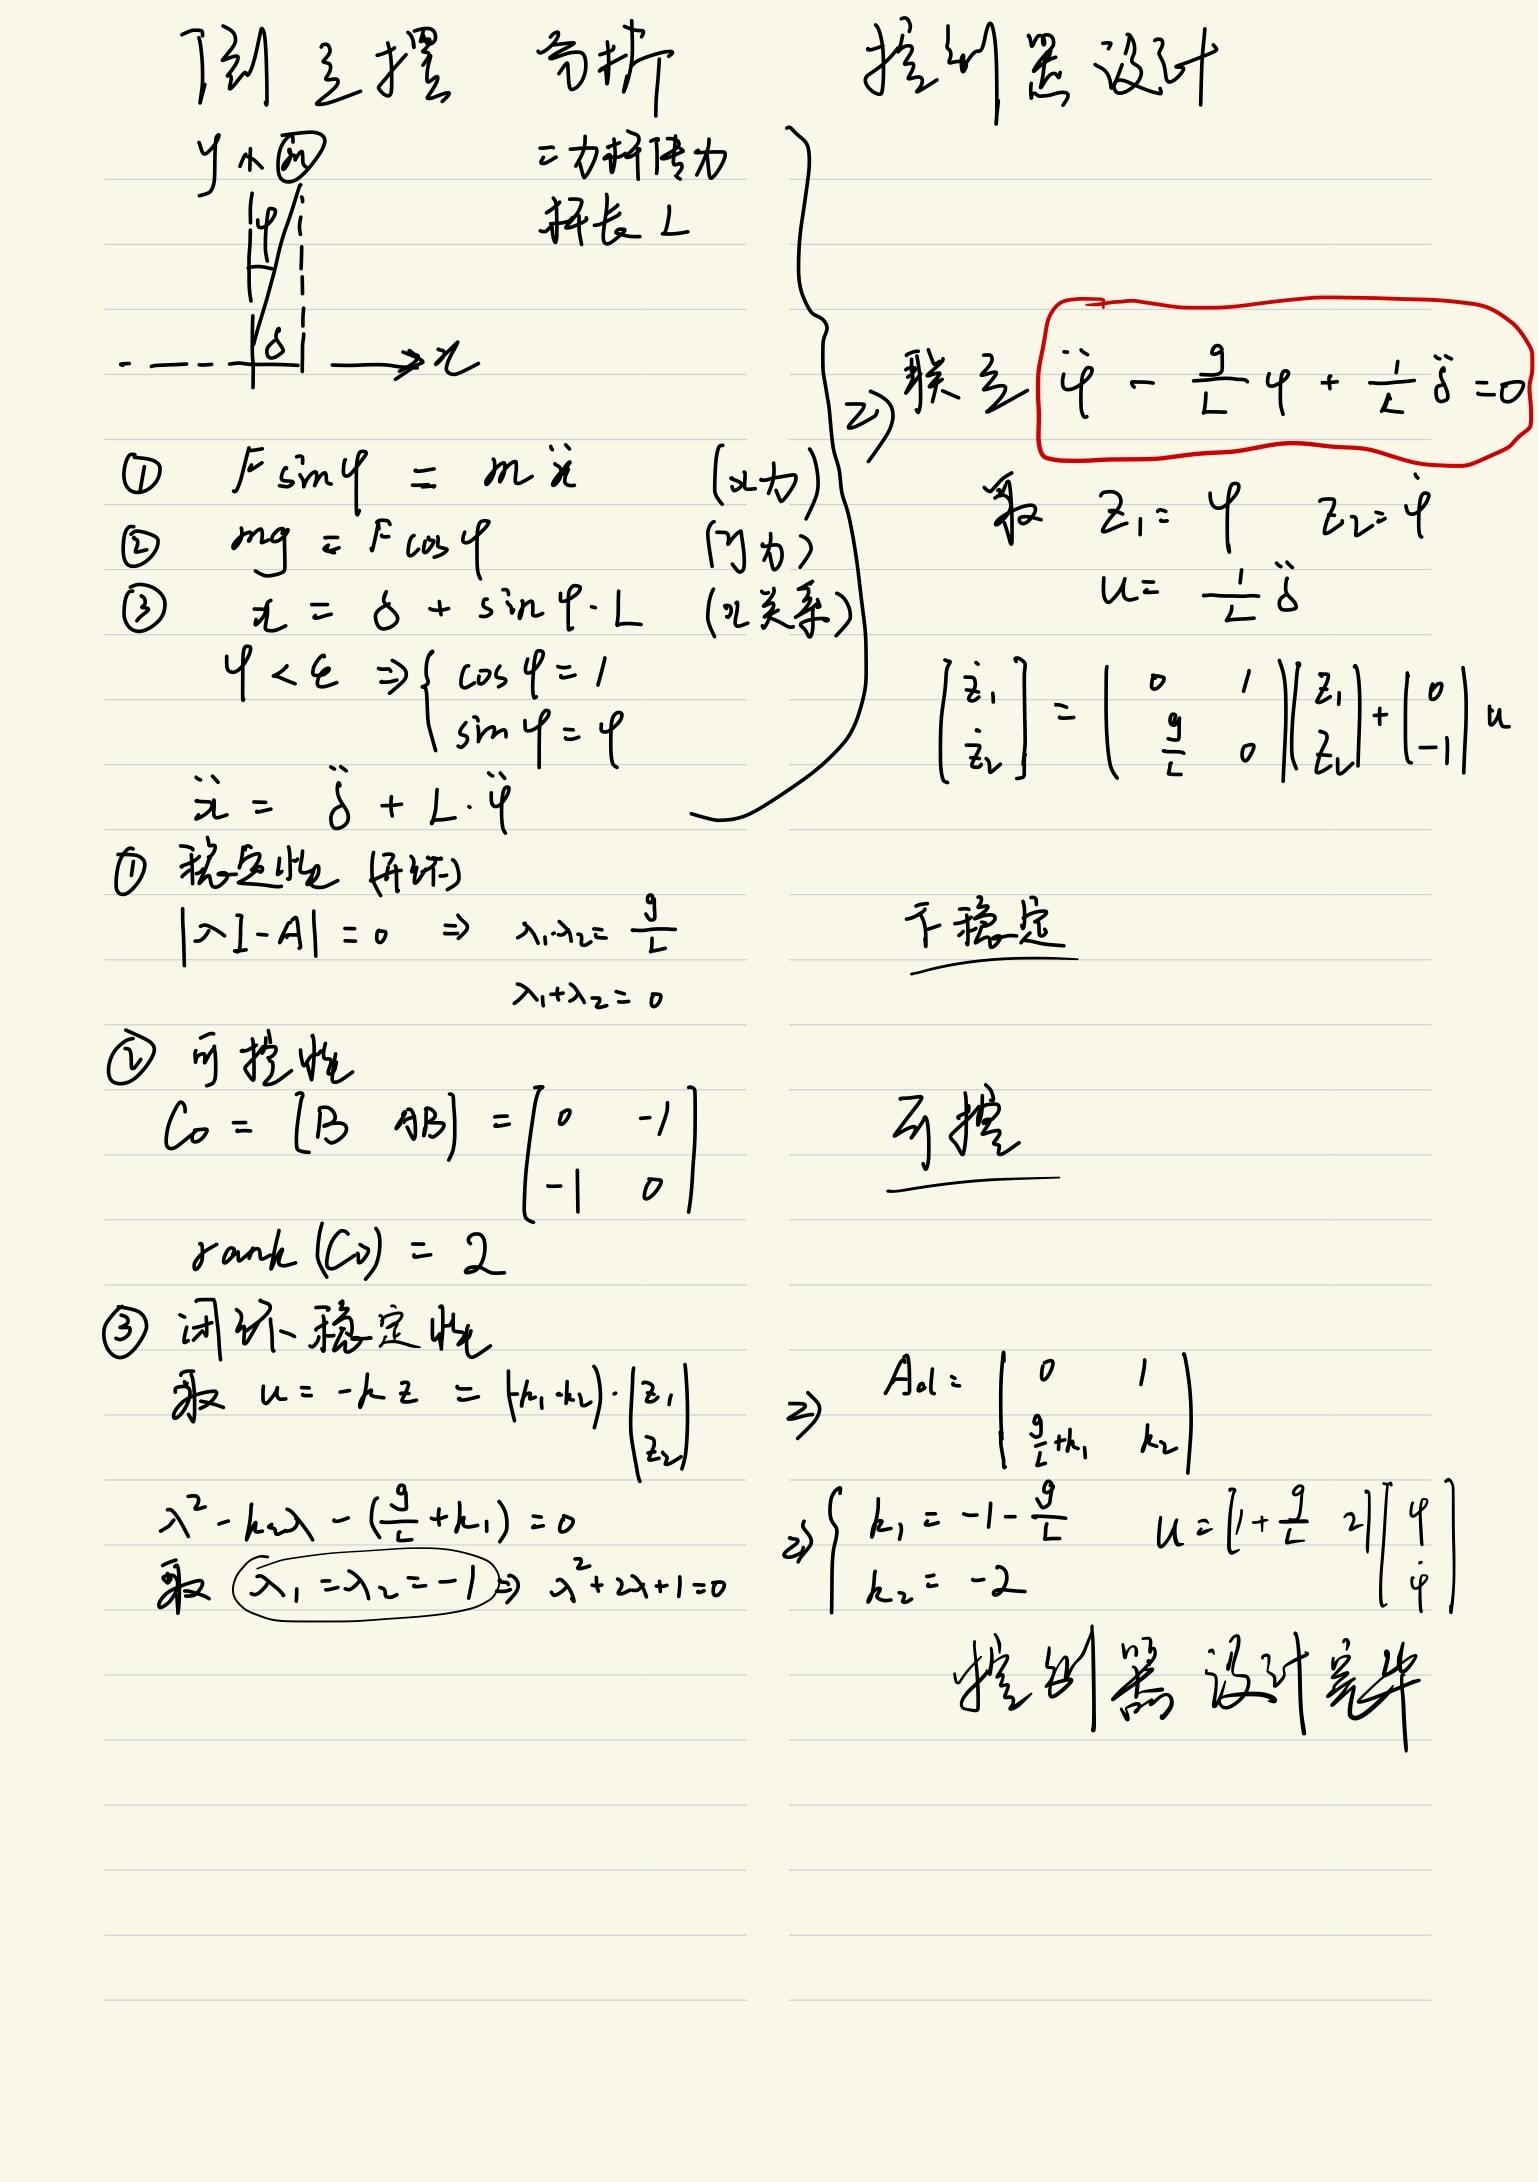 倒立摆 分析 控制器设计
y m
φ
δ
x
二力杆传力
杆长 L
① F sinφ = mẍ (x力)
② mg = F cosφ (y力)
③ x = δ + sinφ·L (x关系)
φ < ε ⇒ { cosφ = 1
sinφ = φ
ẍ = δ̈ + L·φ̈
⇒ 联立 φ̈ - g/L φ + 1/L δ̈ = 0
取 z₁ = φ z₂ = φ̇
u = 1/L δ̈
[ż₁ ż₂] = [0 1; g/L 0][z₁ z₂] + [0 -1] u
① 稳定性 (开环)
|λI-A| = 0 ⇒ λ₁·λ₂ = g/L 不稳定
λ₁+λ₂ = 0
② 可控性
Co = [B AB] = [0 -1; -1 0] 可控
rank(Co) = 2
③ 闭环稳定性
取 u = -kz = (-k₁ -k₂)·[z₁ z₂] ⇒ Acl = [0 1; g/L+k₁ k₂]
λ² - k₂λ - (g/L + k₁) = 0
取 λ₁ = λ₂ = -1 ⇒ λ²+2λ+1=0
⇒ { k₁ = -1 - g/L
k₂ = -2
u = [1+g/L 2][φ φ̇]
控制器设计完毕